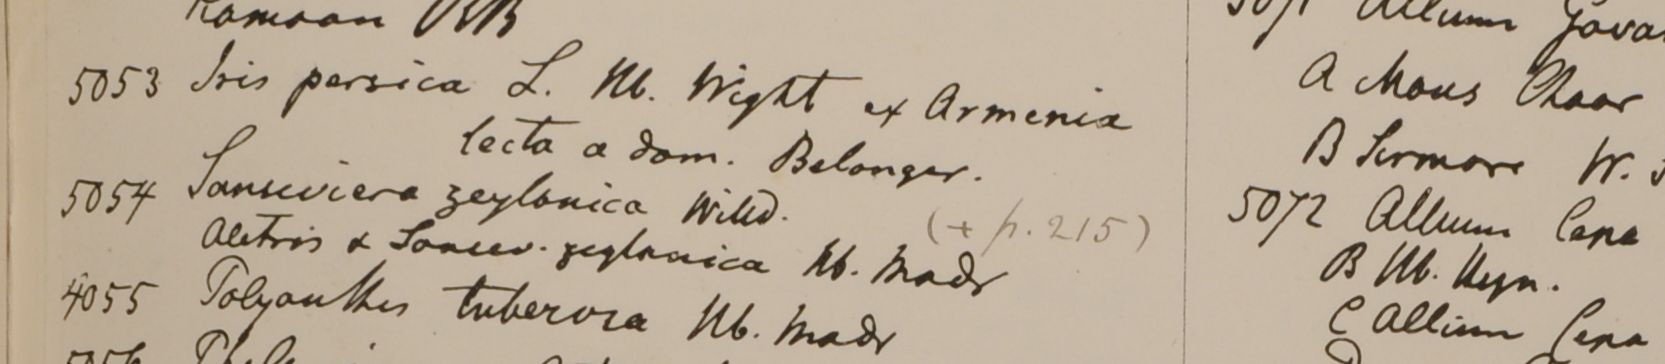 Kamaon RB
5053 Iris persica L. Hb. Wight ex Armenia
lecta a dom. Belanger.
5054 Sanseviera zeylanica Willd.
(+ p. 215)
Aletris & Sansev. zeylanica Hb. Madr
4055 Polyanthes tuberosa Hb. Madr
5056
5071 Allium Gova
A Mons Choor
B Sirmore W. S
5072 Allium Cepa
B Hb. Heyn.
C Allium Cepa